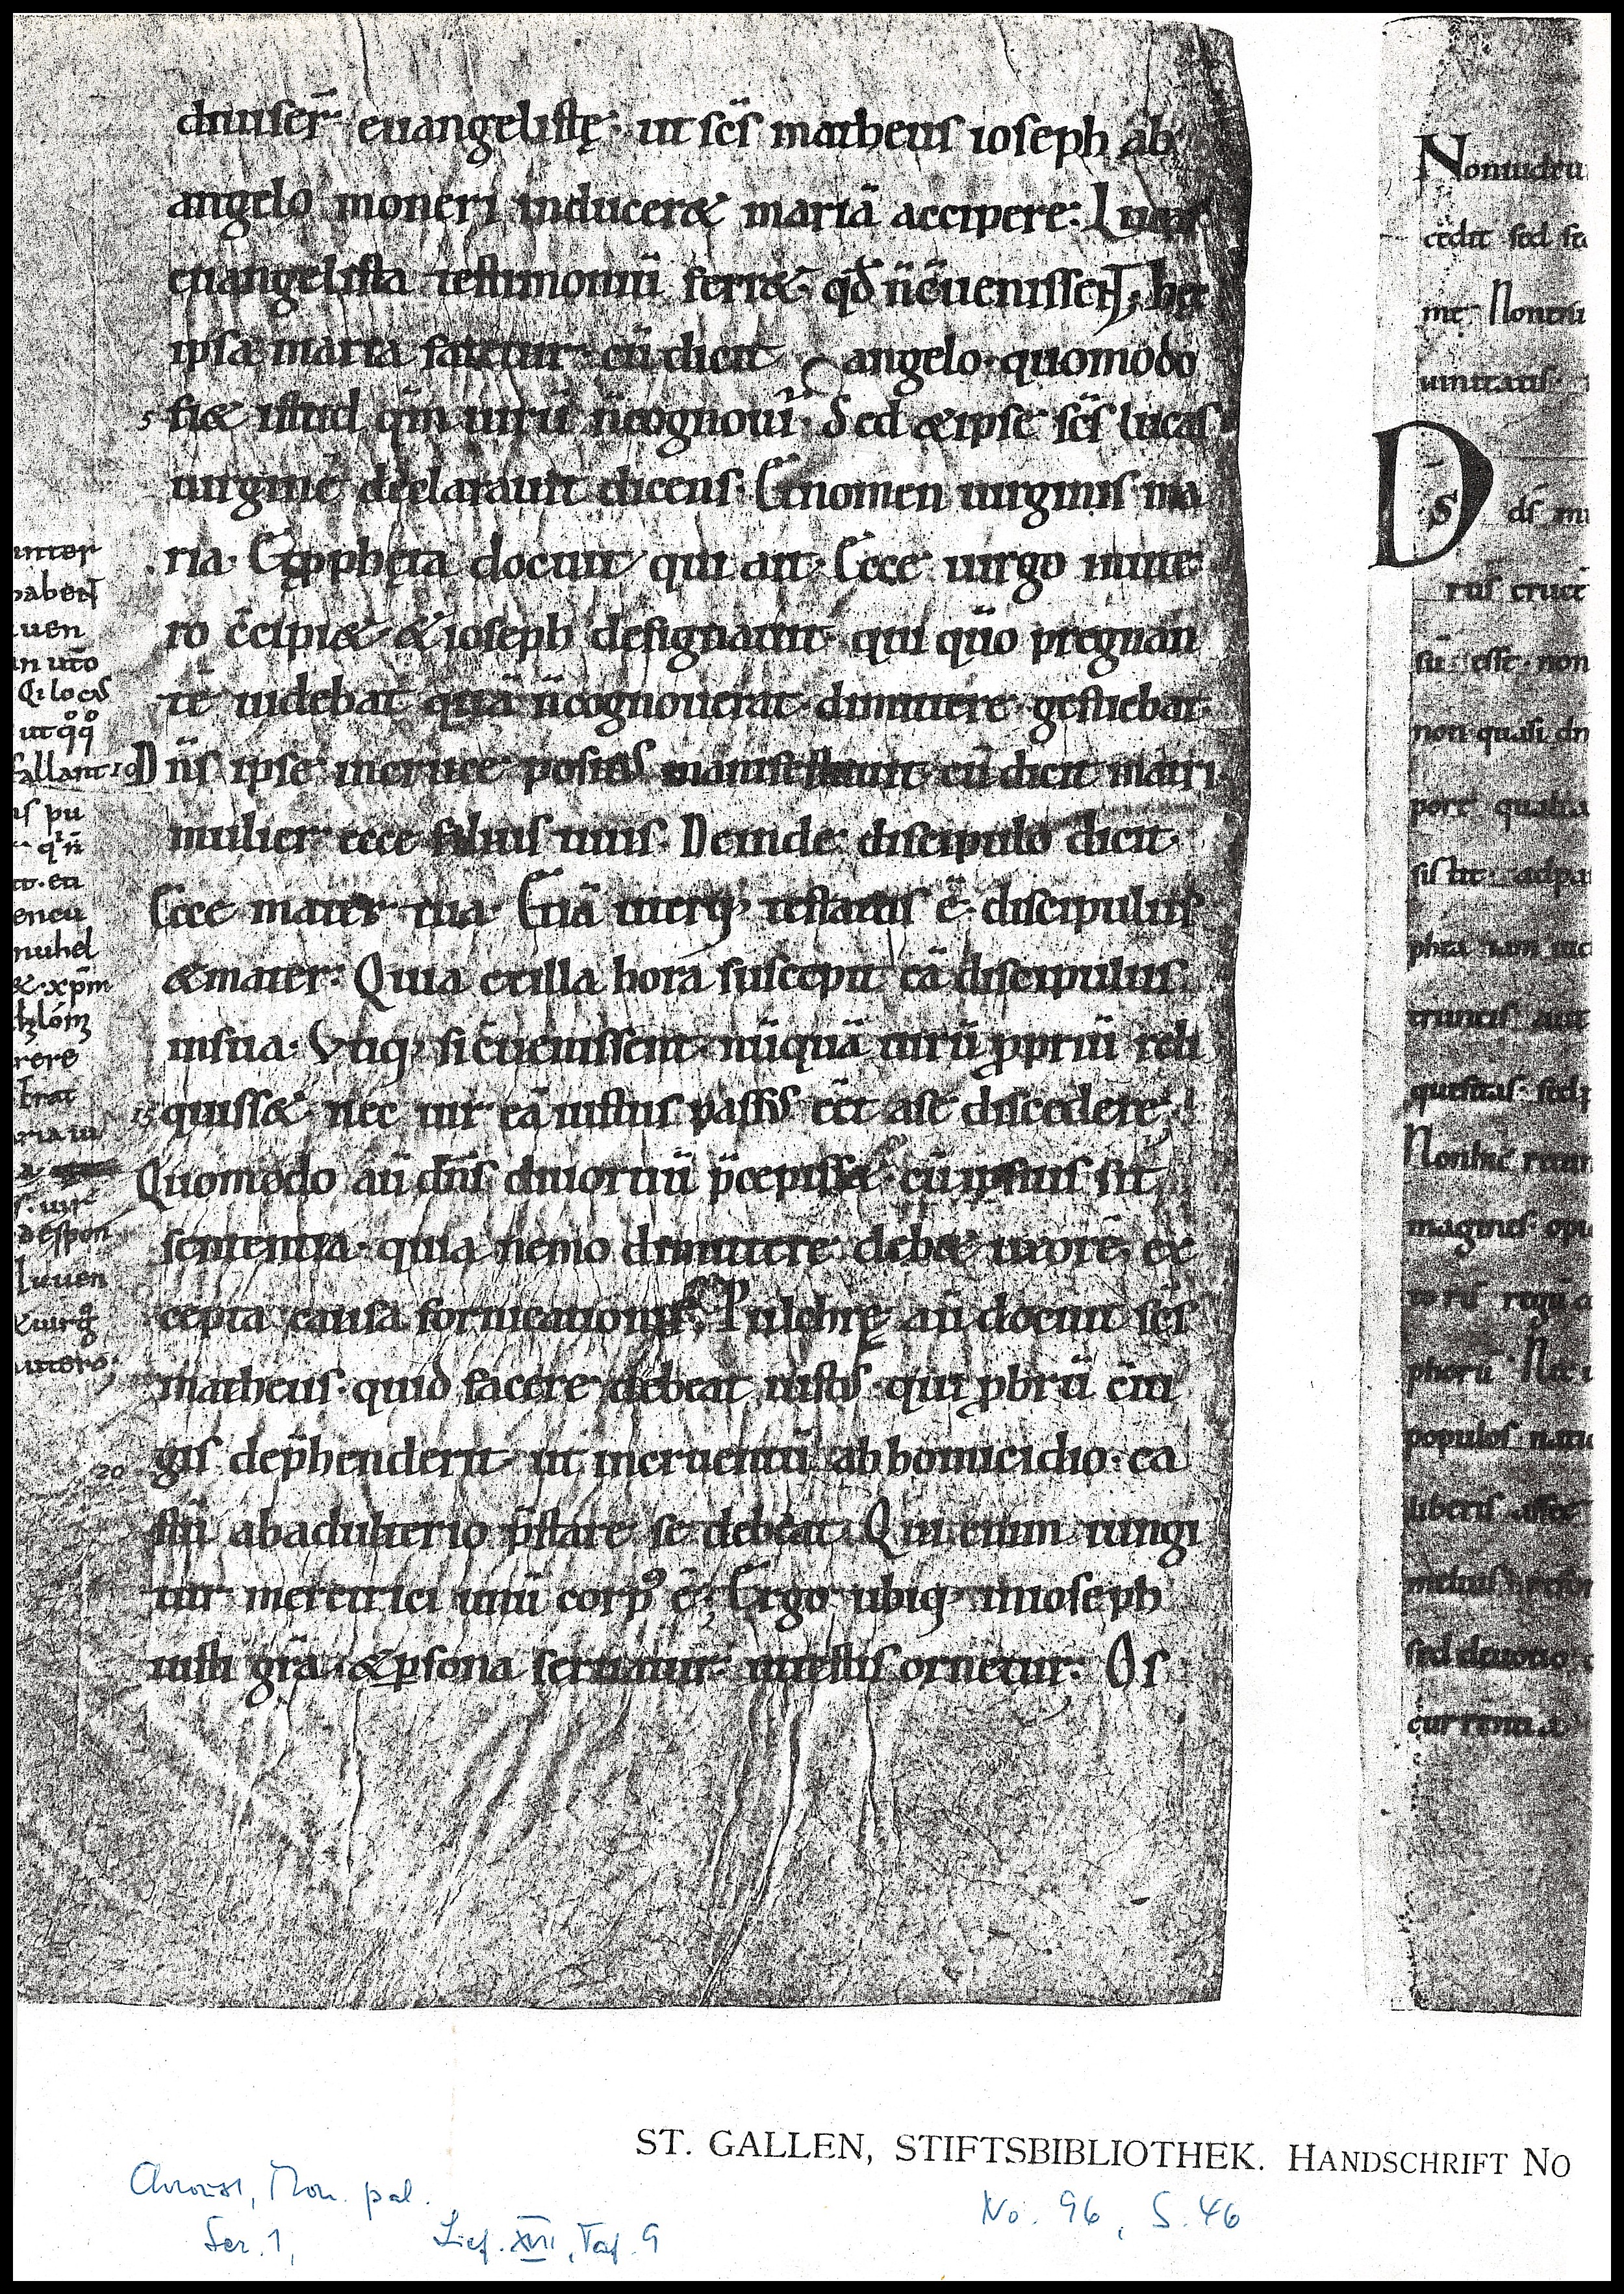 diuiser̄ euangelistę· ut sc̄s matheus ioseph ab
angelo moneri inducer& mariā accipere· Lucas
euangelista testimoniū ferr&· qđ n̄ c̄uenisseNT; hęc
ipsa maria fatetur· cū dicit angelo· quomodo
5 fi& istud qm̄ uirū n̄ cognoui· Sed & ipse sc̄s lucas
uirginē declarauit dicens· Et nomen uirginis ma
ria· Et ꝓphęta docuit qui ait· Ecce uirgo inute
ro c̄cipi&· & ioseph designauit· qui quō pregnan
tē uidebat quā n̄ cognouerat· dimittere gestiebat·
10 Dn̄s ipse incruce positus manifestauit· cū dicit matri·
mulier ecce filius tuus· Deinde discipulo dicit·
Ecce mater tua· Etiā uterq; testatus ē· discipulus
& mater· Quia exilla hora suscepit eā discipulus
insua· Vtiq; si c̄uenissent· nūquā uirū ꝓpriū reli
15 quiss& nec uir eā iustus passus eēt a se discedere·
Quomodo aū dn̄s diuortiū p̄cepiss&· cū ipsius sit
sententia· quia nemo dimittere deb& uxorē· ex
cepta causa fornicationis; Pulchrę aū docuit sc̄s
matheus· quid facere debeat iustus· qui ꝓbrū c̄iu
20 gis dep̄henderit· ut incruentū abhomicidio· ca
stū abadulterio p̄stare se debeat· Qui enim iungi
tur meretrici unū corp⁹ ē; Ergo ubiq; inioseph
iusti grā· & ꝑsona seruatur· ut testis ornetur· Os
inter
habeNT
uen
in uto
Q: locas
ut
fallant
is pu
encu
nuhel
&·xpm̄
rere
brat
ria ui
uir
despon
iuuen
utero·
Nonuidetu
cedit sed se
me Nonenī
uinitatis·
Ds dſ m
rus cruce
sū esse· non
non quasi dn
port qualia
sistit adpa
truncis aut
quesitas sed
magines· opu
phorū Nec
populos natio
liberis
sed deuotio
currentia
ST. GALLEN, STIFTSBIBLIOTHEK. HANDSCHRIFT NO
No. 96, S. 46
Chroust, Mon. pal.
Ser. 1, Lief. XVII, Taf. 9